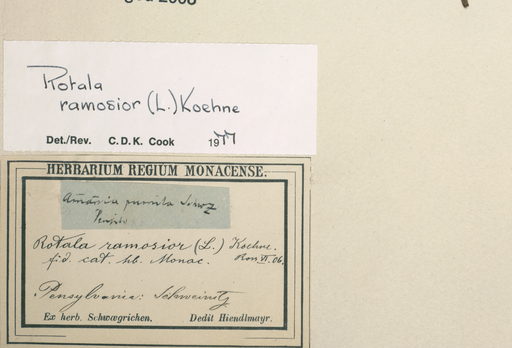 Rotala
ramosior (L.) Koehne
Det./Rev. C.D.K. Cook 1977
HERBARIUM REGIUM MONACENSE.
Rotala ramosior (L.) Koehne.
fid. cat. hb. Monac.
Pensylvania: Schweinitz
Ex herb. Schwægrichen. Dedit Hiendlmayr.